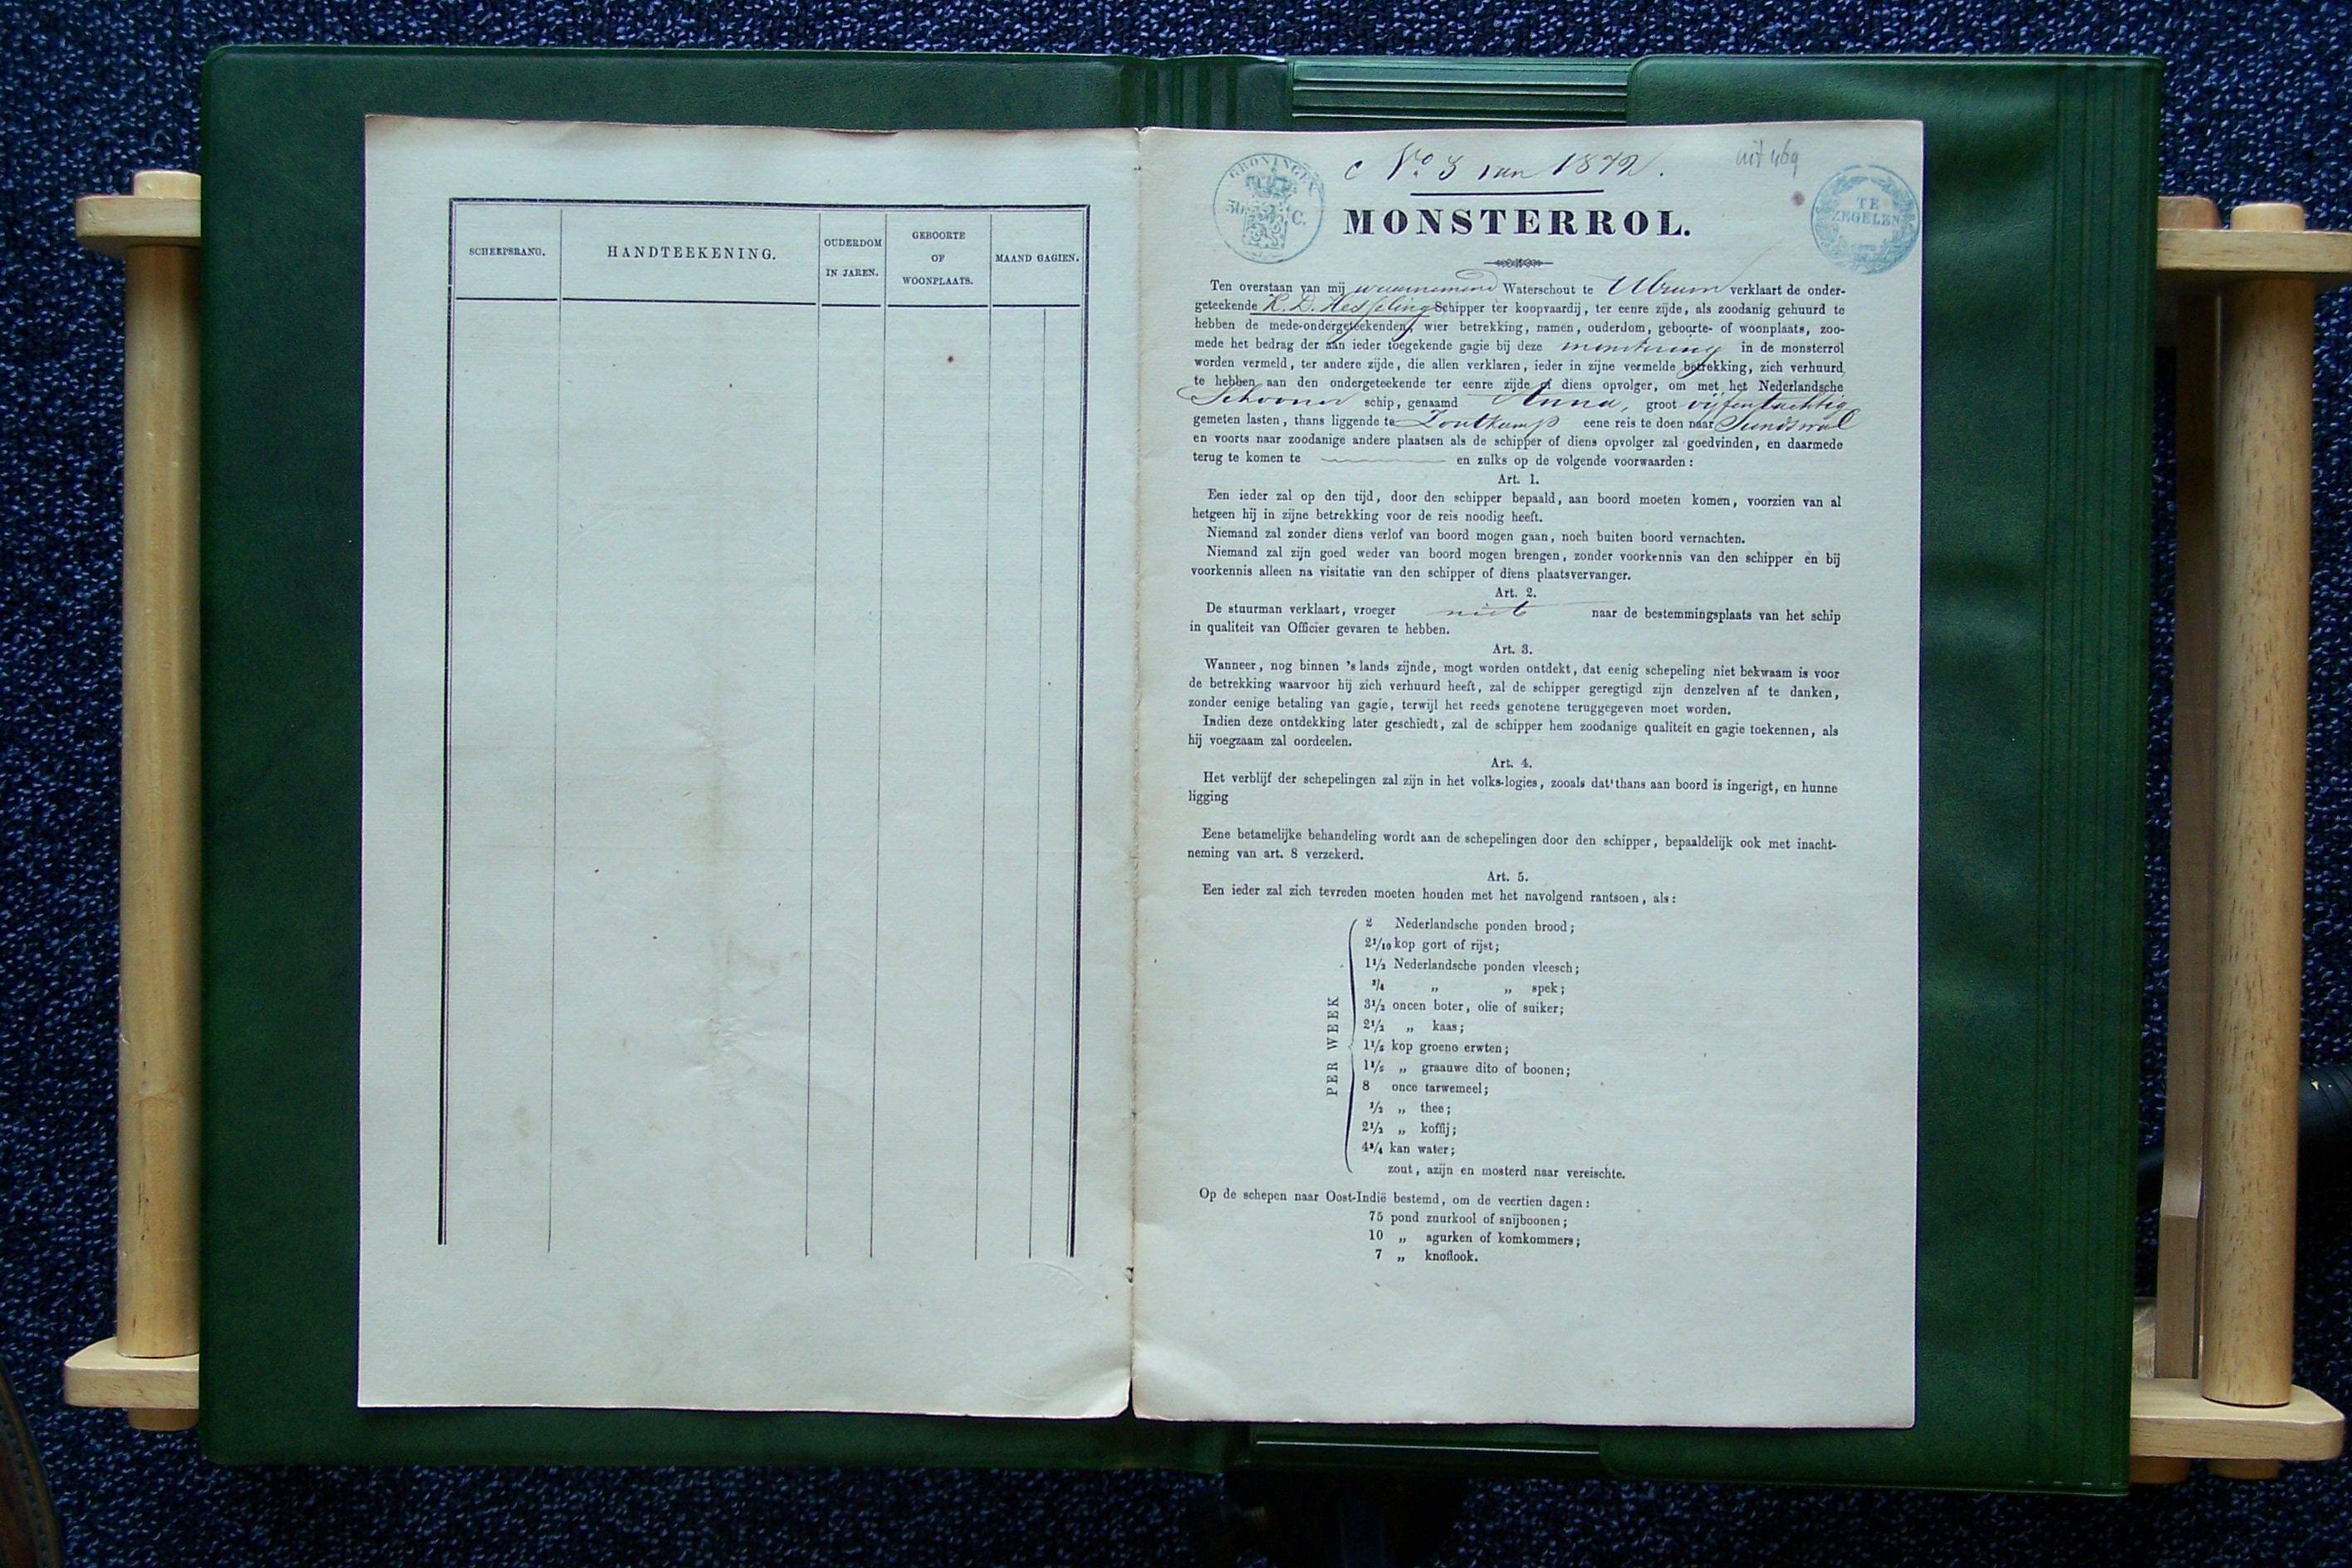 SCHEEPSRANG.
HANDTEEKENING.
OUDERDOM
IN JAREN.
GEBOORTE
OF
WOONPLAATS.
MAAND GAGIEN.
GRONINGEN
50 C.
No. 3 van 1872.
uit 469
TE
ZEGELEN
MONSTERROL.
Ten overstaan van mij waarnemend Waterschout te Ulrum verklaart de onder-
geteekende K. D. Hesseling Schipper ter koopvaardij, ter eenre zijde, als zoodanig gehuurd te
hebben de mede-ondergeteekenden, wier betrekking, namen, ouderdom, geboorte- of woonplaats, zoo-
mede het bedrag der aan ieder toegekende gagie bij deze monstering in de monsterrol
worden vermeld, ter andere zijde, die allen verklaren, ieder in zijne vermelde betrekking, zich verhuurd
te hebben aan den ondergeteekende ter eenre zijde of diens opvolger, om met het Nederlandsche
Schooner schip, genaamd Anna, groot vijfentachtig
gemeten lasten, thans liggende te Zoutkamp eene reis te doen naar Sundswal
en voorts naar zoodanige andere plaatsen als de schipper of diens opvolger zal goedvinden, en daarmede
terug te komen te en zulks op de volgende voorwaarden:
Art. 1.
Een ieder zal op den tijd, door den schipper bepaald, aan boord moeten komen, voorzien van al
hetgeen hij in zijne betrekking voor de reis noodig heeft.
Niemand zal zonder diens verlof van boord mogen gaan, noch buiten boord vernachten.
Niemand zal zijn goed weder van boord mogen brengen, zonder voorkennis van den schipper en bij
voorkennis alleen na visitatie van den schipper of diens plaatsvervanger.
Art. 2.
De stuurman verklaart, vroeger niet naar de bestemmingsplaats van het schip
in qualiteit van Officier gevaren te hebben.
Art. 3.
Wanneer, nog binnen 's lands zijnde, mogt worden ontdekt, dat eenig schepeling niet bekwaam is voor
de betrekking waarvoor hij zich verhuurd heeft, zal de schipper geregtigd zijn denzelven af te danken,
zonder eenige betaling van gagie, terwijl het reeds genotene teruggegeven moet worden.
Indien deze ontdekking later geschiedt, zal de schipper hem zoodanige qualiteit en gagie toekennen, als
hij voegzaam zal oordeelen.
Art. 4.
Het verblijf der schepelingen zal zijn in het volks-logies, zooals dat thans aan boord is ingerigt, en hunne
ligging
Eene betamelijke behandeling wordt aan de schepelingen door den schipper, bepaaldelijk ook met inacht-
neming van art. 8 verzekerd.
Art. 5.
Een ieder zal zich tevreden moeten houden met het navolgend rantsoen, als:
PER WEEK
2 Nederlandsche ponden brood;
2 1/10 kop gort of rijst;
1 1/2 Nederlandsche ponden vleesch;
3/4 „ „ spek;
3 1/2 oncen boter, olie of suiker;
2 1/2 „ kaas;
1 1/5 kop groene erwten;
1 1/5 „ graauwe dito of boonen;
8 once tarwemeel;
1/2 „ thee;
2 1/2 „ koffij;
4 3/4 kan water;
zout, azijn en mosterd naar vereischte.
Op de schepen naar Oost-Indië bestemd, om de veertien dagen:
75 pond zuurkool of snijboonen;
10 „ agurken of komkommers;
7 „ knoflook.